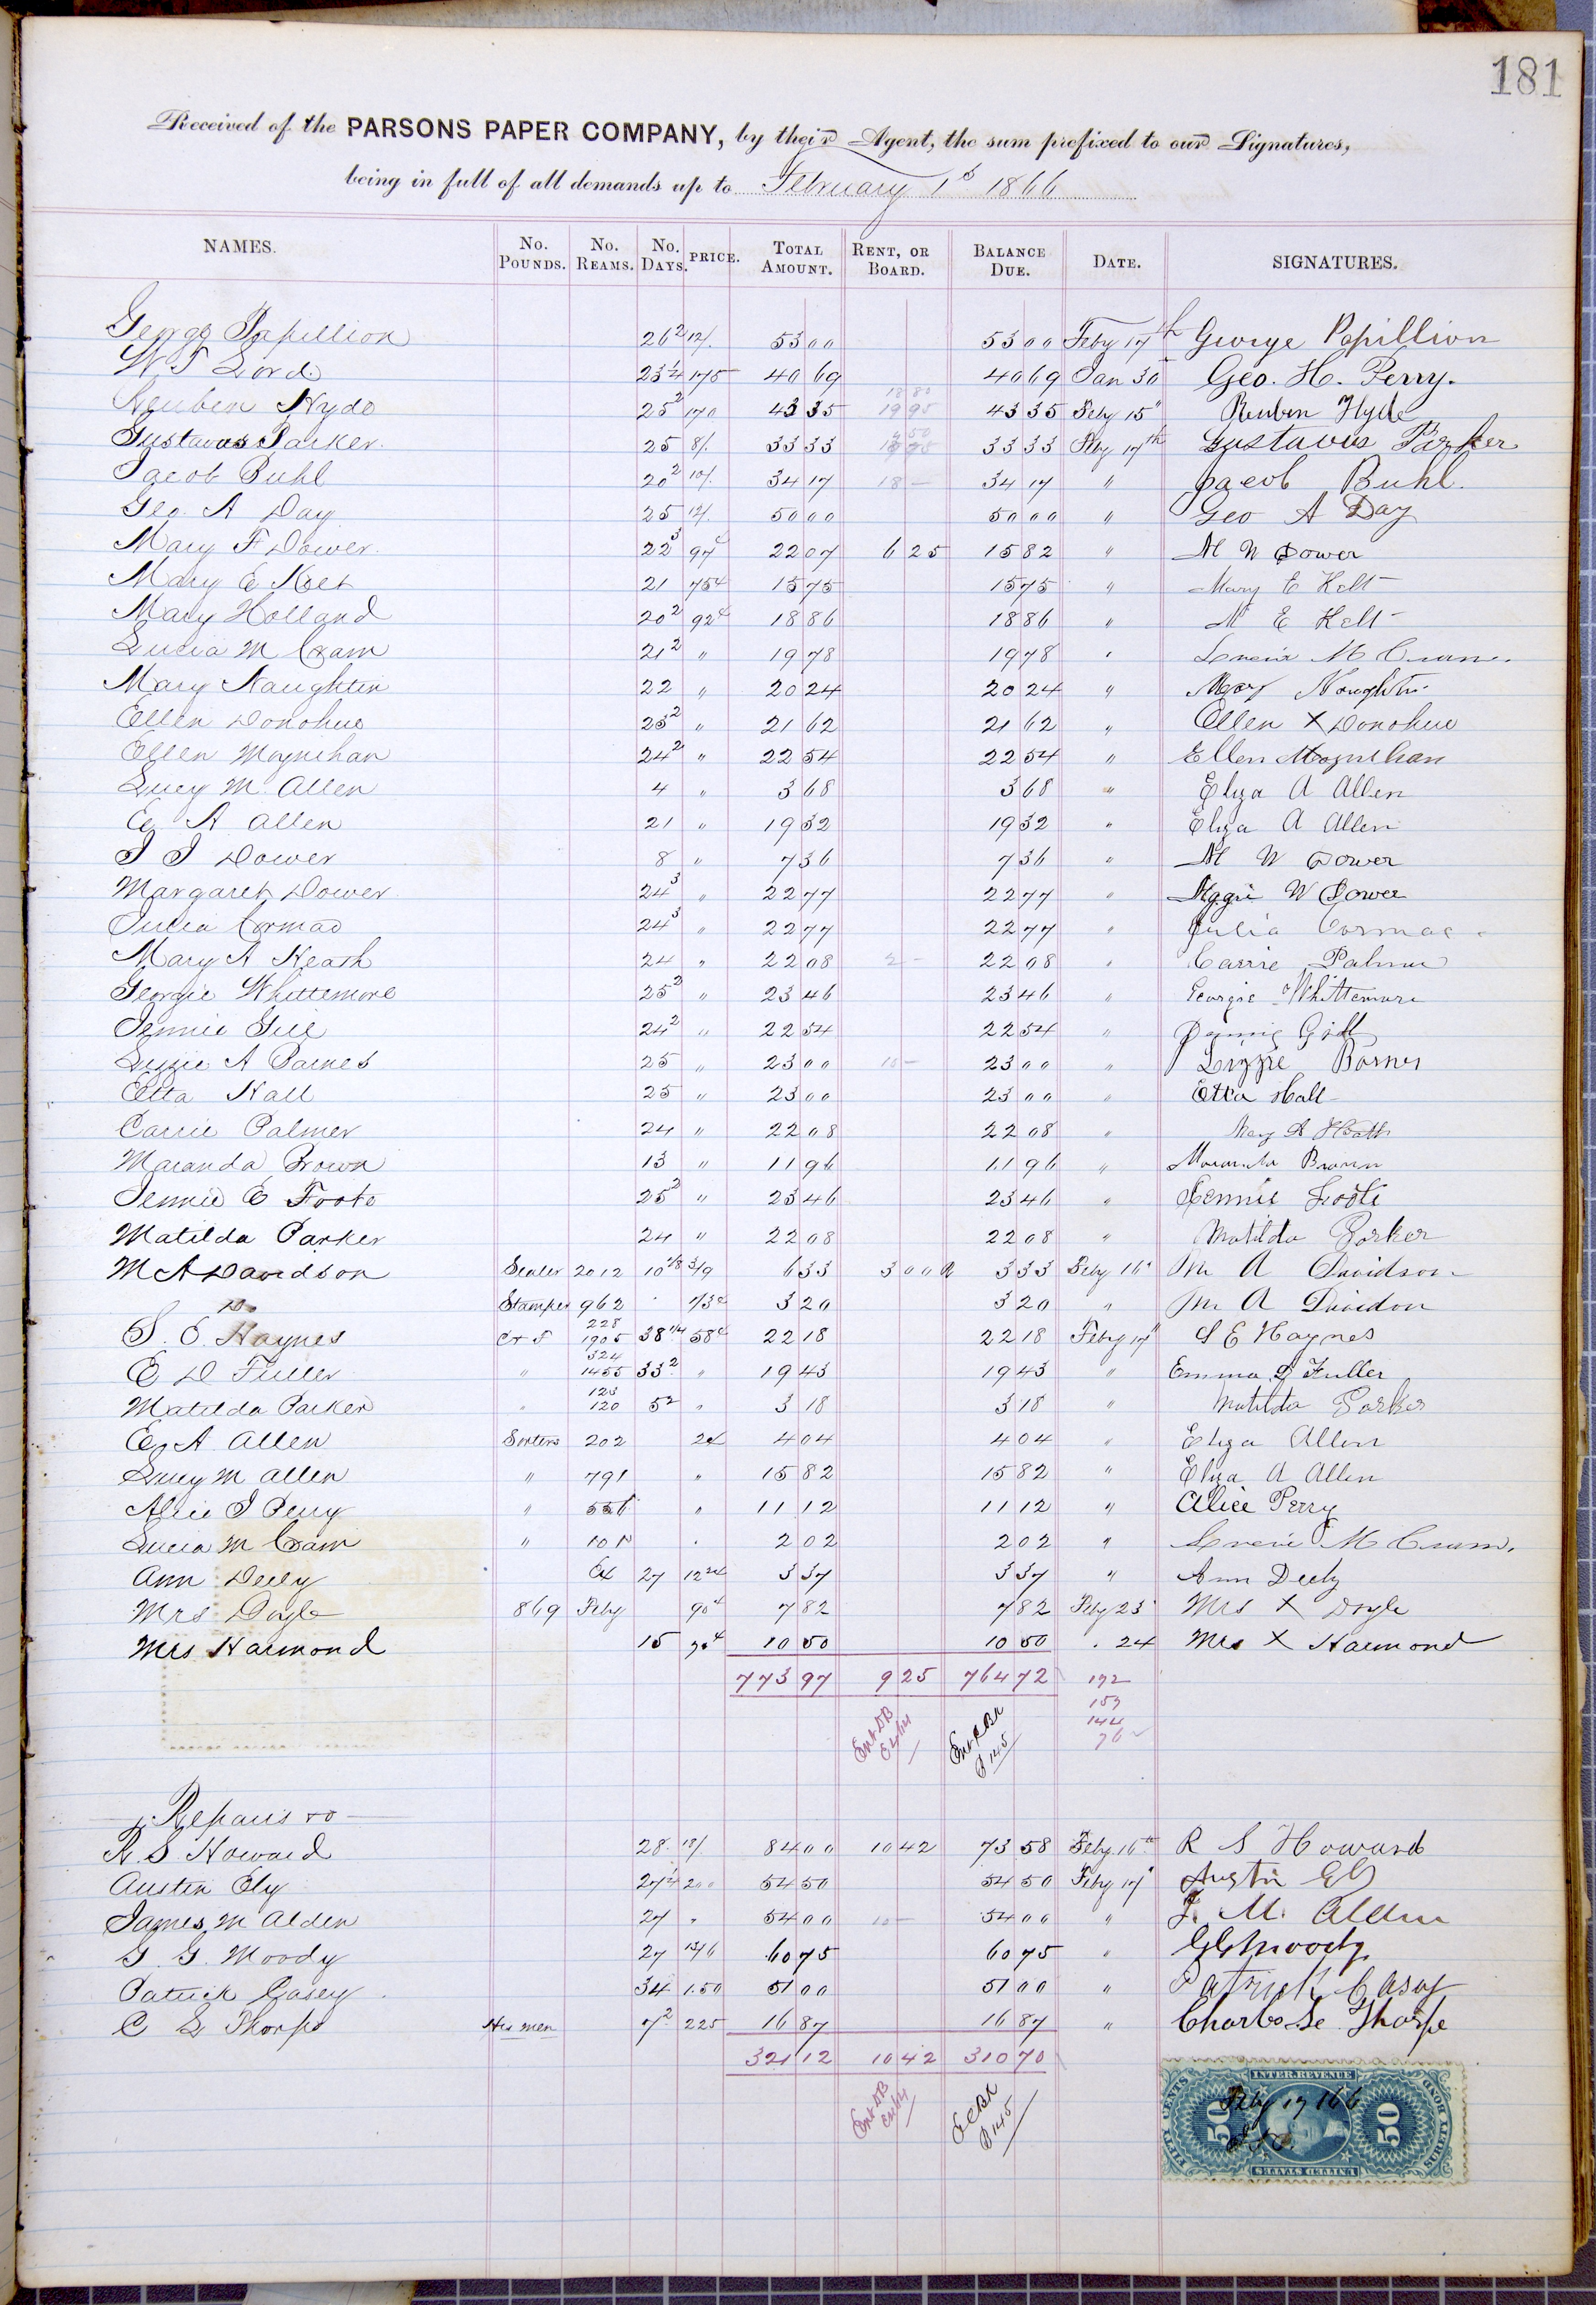 181
Received of the PARSONS PAPER COMPANY, by their Agent, the sum prefixed to our Signatures,
being in full of all demands up to February 1st 1866
NAMES. No. POUNDS. No. REAMS. No. DAYS. PRICE. TOTAL AMOUNT. RENT, OR BOARD. BALANCE DUE. DATE. SIGNATURES.
George Papillion 26 2 12/. 53 00 53 00 Feby 17th George Papillion
W T Lord 23 1/4 175 40 69 40 69 Jan 30 Geo. H. Perry.
Reuben Hyde 25 2 170 43 35 43 35 Feby 15" Reuben Hyde
Gustavus Parker 25 8/. 33 33 33 33 Feby 17th Gustavus Parker
Jacob Buhl 20 2 10/. 34 17 18 – 34 17 " Jacob Buhl.
Geo. A Day 25 12/. 50 00 50 00 " Geo A Day
Mary F Dower. 22 3 97c 22 07 6 25 15 82 " M W Dower
Mary E Kelt 21 75c 15 75 15 75 " Mary E Kelt
Mary Holland 20 2 92c 18 86 18 86 " M E Kelt
Lucia M Cram 21 2 " 19 78 19 78 " Lucia M Cram.
Mary Naughtin 22 " 20 24 20 24 " Mary Naughtin
Ellen Donohue 23 2 " 21 62 21 62 " Ellen X Donohue
Ellen Moynihan 24 2 " 22 54 22 54 " Ellen Moynihan
Lucy M Allen 4 " 3 68 3 68 " Eliza A Allen
E A Allen 21 " 19 32 19 32 " Eliza A Allen
J J Dower 8 " 7 36 7 36 " M W Dower
Margaret Dower 24 3 " 22 77 22 77 " Maggie W Dower
Julia Cormac 24 3 " 22 77 22 77 " Julia Cormac
Mary A Heath 24 " 22 08 2 – 22 08 " Carrie Palmer
Georgie Whittemore 25 2 " 23 46 23 46 " Georgie Whittemore
Jennie Gill 24 2 " 22 54 22 54 " Jennie Gill
Lizzie A Barnes 25 " 23 00 10 – 23 00 " Lizzie Barnes
Etta Hall 25 " 23 00 23 00 " Etta Hall
Carrie Palmer 24 " 22 08 22 08 " Mary A Heath
Maranda Brown 13 " 11 96 11 96 " Maranda Brown
Jennie E Foote 25 2 " 23 46 23 46 " Jennie Foote
Matilda Parker 24 " 22 08 22 08 " Matilda Parker
M A Davidson Sealer 2012 10 1/8 3/9 6 33 3 00 3 33 Feby 16" M A Davidson
Do Stamper 962 1/3c 3 20 3 20 " M A Davidson
S. E. Haynes 228 1905 38 1/4 58c 22 18 22 18 Feby 17" S E Haynes
E D Fuller " 324 1455 33 2 " 19 43 19 43 " Emma D Fuller
Matilda Parker " 123 120 5 2 " 3 18 3 18 " Matilda Parker
E A Allen Sorters 202 2c 4 04 4 04 " Eliza Allen
Lucy M Allen " 791 " 15 82 15 82 " Eliza A Allen
Alice J Perry " 556 " 11 12 11 12 " Alice Perry
Lucia M Cram " 101 " 2 02 2 02 " Lucia M Cram.
Ann Deely Ex 27 3 37 3 37 " Ann Deely
Mrs Doyle 869 Feby 90c 7 82 7 82 Feby 23 Mrs X Doyle
Mrs Harmond 15 70c 10 50 10 50 " 24 Mrs X Harmond
773 97 9 25 764 72 192
153
144
76
Ent DB
Ent CBk
P 145
Repairs &c
R. S. Howard 28 18/ 84 00 10 42 73 58 Feby 16th R S Howard
Austin Ely 27 1/4 200 54 50 54 50 Feby 17" Austin Ely
James M Alden 27 " 54 00 10 – 54 00 " J. M. Alden
G. G. Moody 27 13/6 60 75 60 75 " G G Moody
Patrick Casey 34 1.50 51 00 51 00 " Patrick Casey
C L Thorpe His men 7 2 225 16 87 16 87 " Charles Le Thorpe
321 12 10 42 310 70
Ent DB
E CBk
P 145
INTER. REVENUE
FIFTY CENTS
50
50
SURETY BOND
UNITED STATES
Feby 17 166